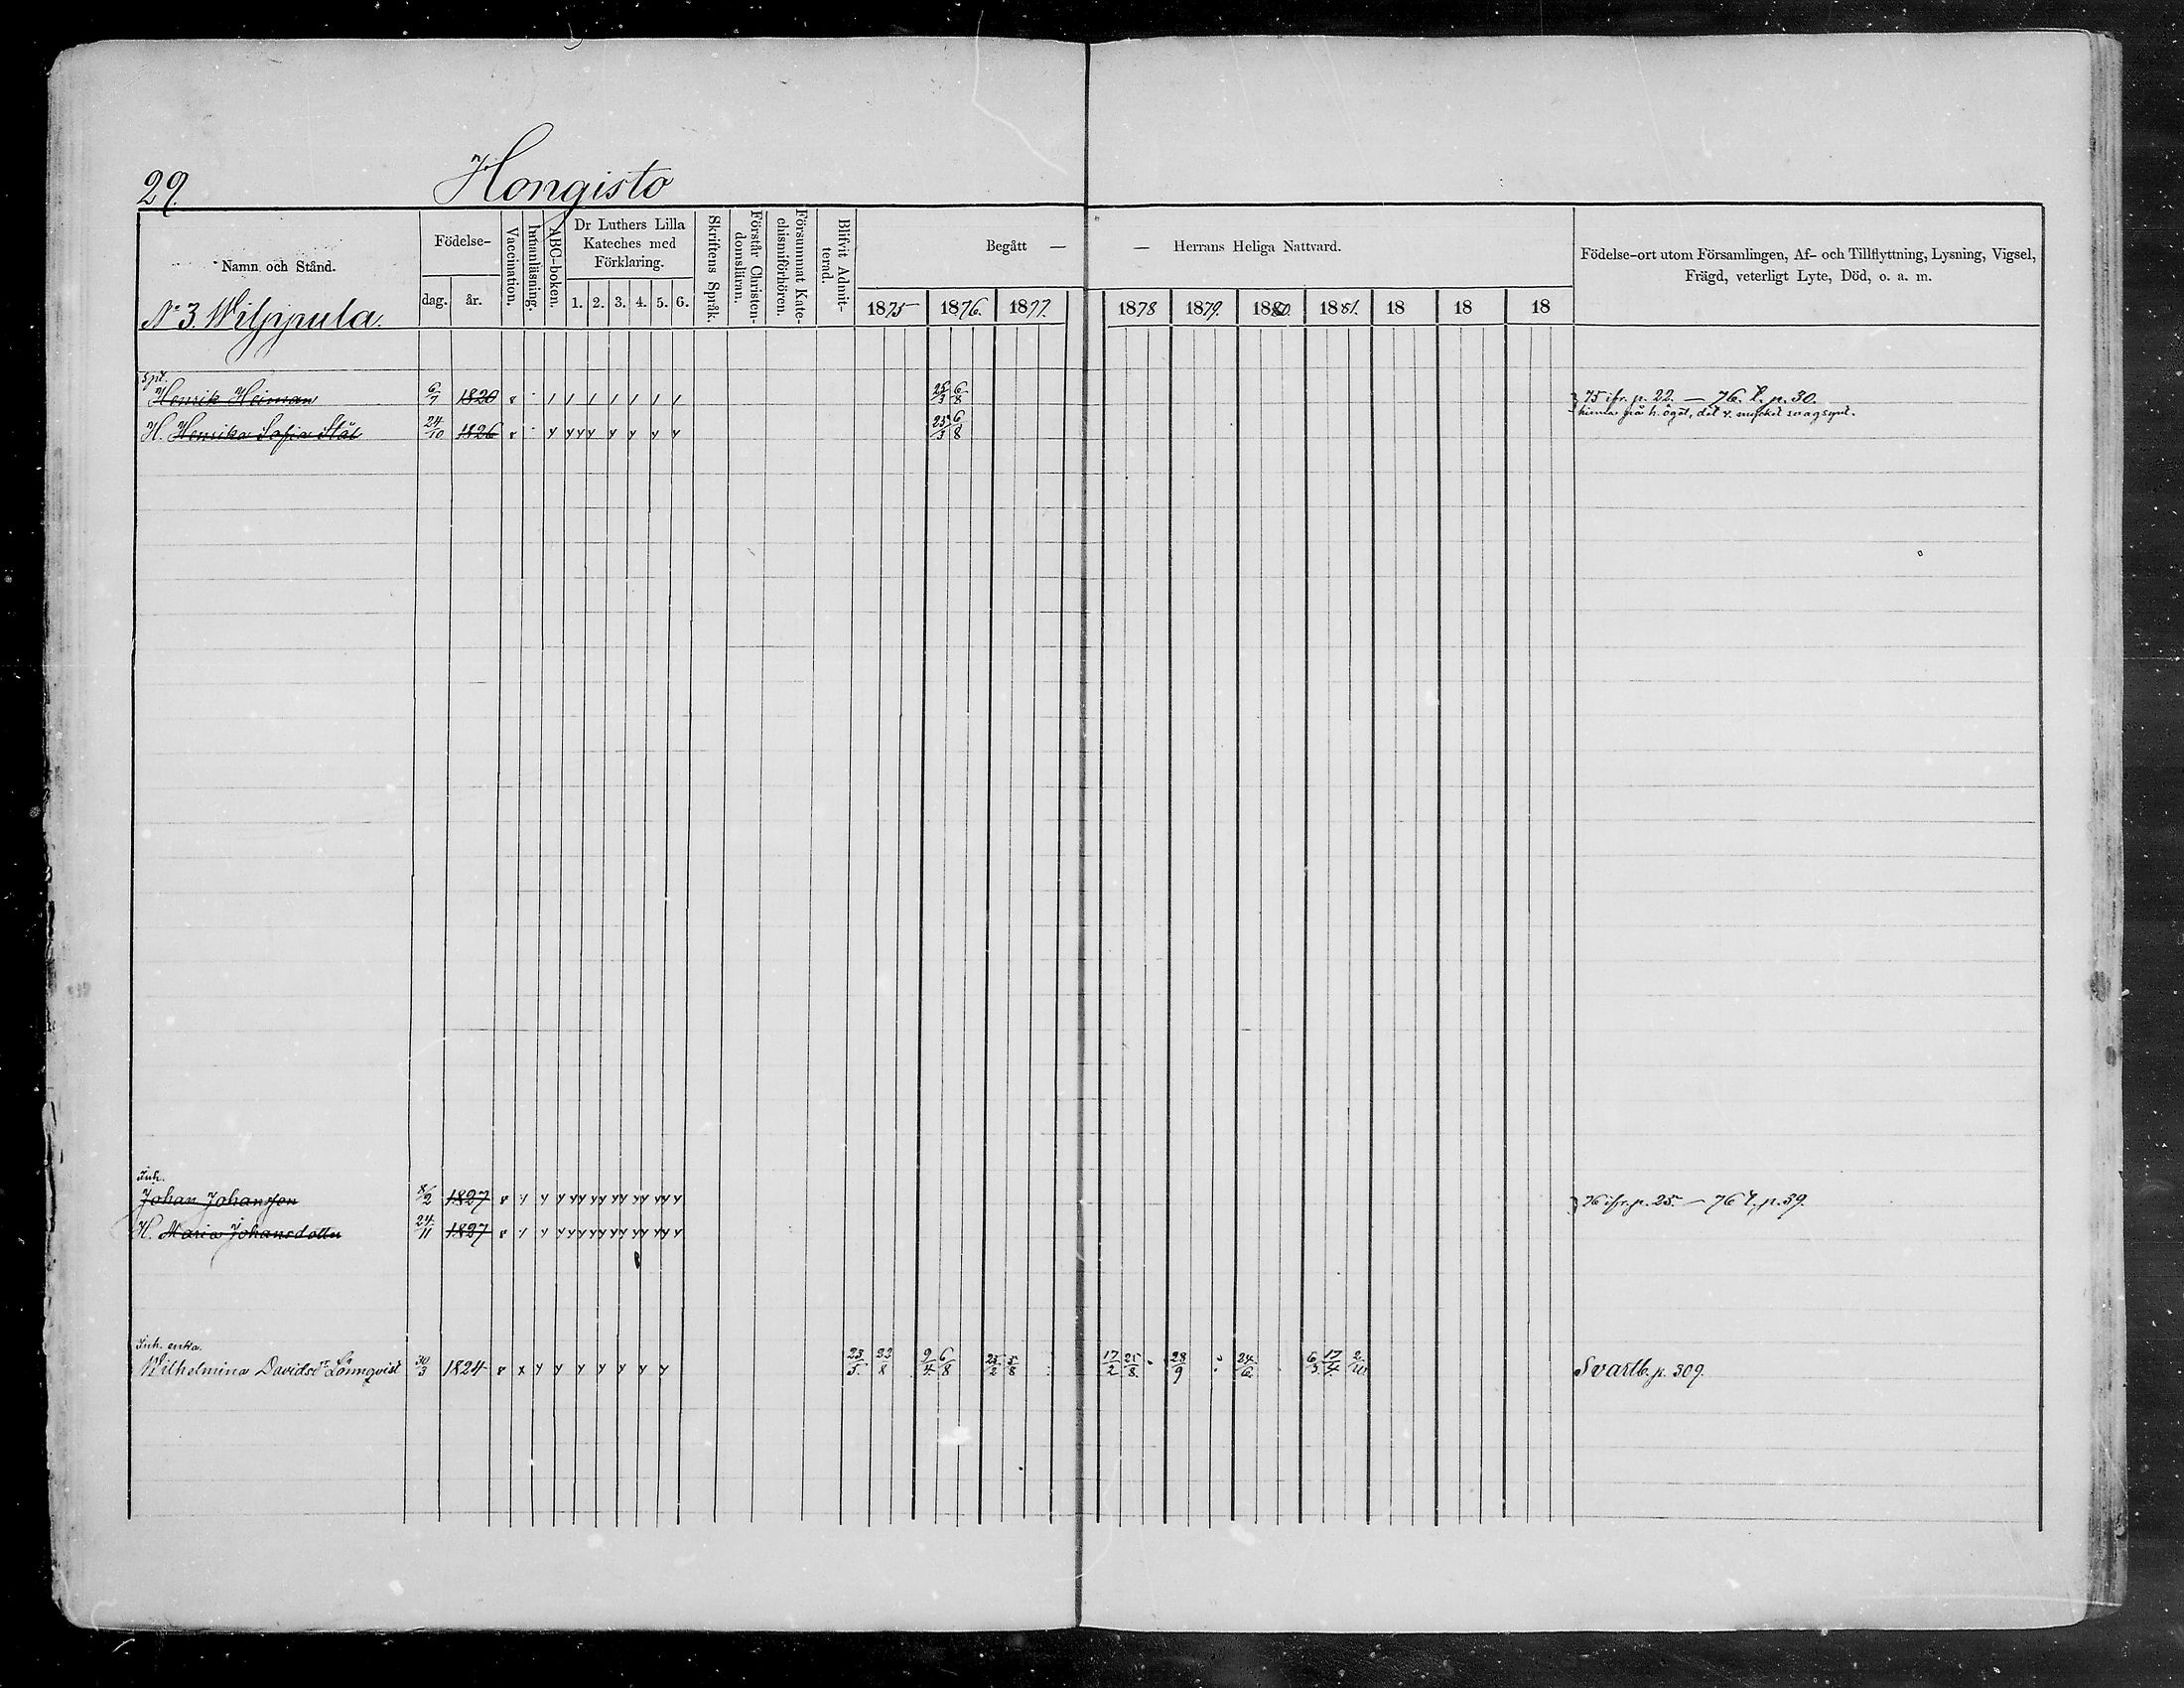 29.
Hongisto
Namn och Stånd.
Födelse-
dag.
år.
Vaccination.
Innanläsning.
ABC-boken.
Dr Luthers Lilla
Kateches med
Förklaring.
1. 2. 3. 4. 5. 6.
Skriftens Språk.
Förstår Christen-
domsläran.
Försummat Kate-
chismiförhören.
Blifvit Admit-
terad.
Begått — — Herrans Heliga Nattvard.
1875 1876. 1877. 1878 1879. 1880. 1881. 18 18 18
Födelse-ort utom Församlingen, Af- och Tillflyttning, Lysning, Vigsel,
Frägd, veterligt Lyte, Död, o. a. m.
No 3. Wilppula.
spt.
Henrik Heiman 6/7 1820 25/3 6/8 75 ifr. p. 22. — 76. t. p. 30.
hinna på h. ögat, det v. mycket svagsynt.
H. Henrika Sofia Stål 24/10 1826 25/3 6/8
Inh.
Johan Johansson 8/2 1827 76 ifr. p. 25. — 76 t. p. 39.
H. Maria Johansdotter 24/11 1827
Inh. enka.
Wilhelmina Davidsdr Lönnqvist 30/3 1824 23/5. 22/8 9/4 6/8 25/2 5/8 17/2 25/8. 28/9 24/6. 6/3. 17/4. 2/10 Svartb. p. 309.